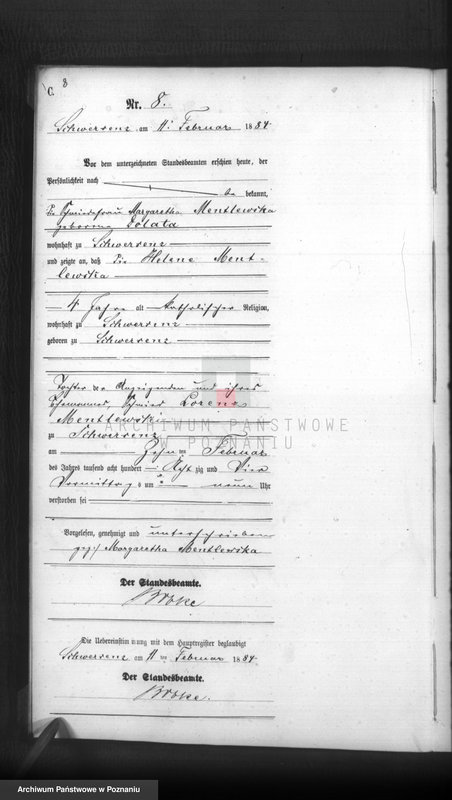 C.
8
Nr. 8.
Schwersenz am 11. Februar 1884
Vor dem unterzeichneten Standesbeamten erschien heute, der
Persönlichkeit nach
bekannt,
die Schmiedefrau Margaretha Mentlewska
geborene Solata
wohnhaft zu Schwersenz
und zeigte an, daß die Helene Ment-
lewska
4 Jahre alt katholischer Religion,
wohnhaft zu Schwersenz
geboren zu Schwersenz
Tochter der Anzeigenden und ihres
Ehemannes, Schmied Lorenz
Mentlewski
zu Schwersenz
am Zehn ten Februar
des Jahres tausend acht hundert Acht zig und Vier
Vormittags um neun Uhr
verstorben sei
Vorgelesen, genehmigt und unterschrieben
gez/ Margaretha Mentlewska
Der Standesbeamte.
Die Uebereinstimmung mit dem Hauptregister beglaubigt
Schwersenz am 11 ten Februar 1884.
Der Standesbeamte.
ARCHIWUM PAŃSTWOWE
W POZNANIU
Archiwum Państwowe w Poznaniu